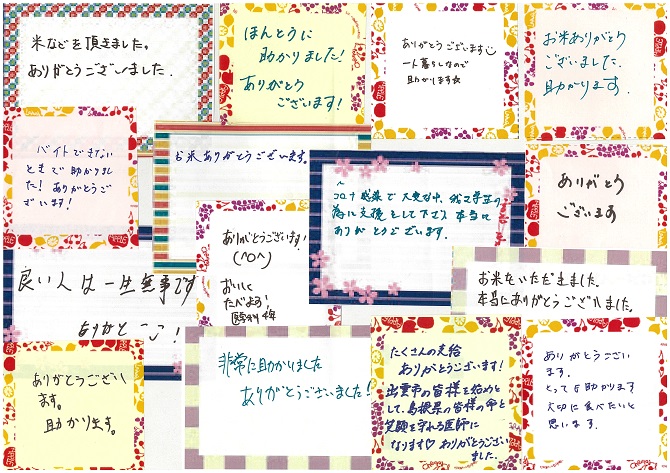 米などを頂きました。
ありがとうございました.
ほんとうに
助かりました!
ありがとう
ございます!
ありがとうございます
一人暮らしなので
助かります
お米ありがとう
ございました.
助かります.
バイトできない
ときで助かりまし
た!ありがとうご
ざいます!
お米ありがとうございます.
ありがとうございます!
(^o^)
おいしく
たべよう!
コロナ感染で大変な中、
為に支援をして下さり本当に
ありがとうございます.
ありがとう
ございます
良い人は一生無事です
ありがとう
お米をいただきました.
本当にありがとうございました.
ありがとうござい
ます。
助かります。
非常に助かりました
ありがとうございました!
たくさんの支給
ありがとうございます!
出雲市の皆様を始めと
して、島根県の皆様の命と
笑顔を守れる医師に
なります♡ ありがとうござい
ました。
ありがとうござい
ます.
とっても助かります
大切に食べたいと
思います.